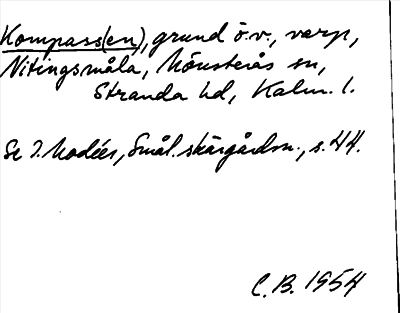 Kompass(en), grund ö.v., varp,
Nitingsmåla, Mönsterås sn,
Stranda hd, Kalm. l.
Se I. Modéer, Smål. skärgårdsn., s. 44.
C. B. 1954